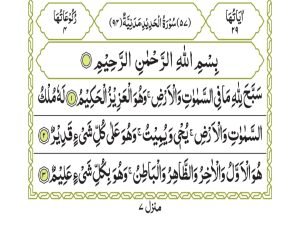 اٰيَاتُهَا ٢٩ (٥٧) سُوْرَةُ الْحَدِيْدِ مَدَنِيَّةٌ (٩٤) رُكُوْعَاتُهَا ٤
بِسْمِ اللّٰهِ الرَّحْمٰنِ الرَّحِيْمِ
سَبَّحَ لِلّٰهِ مَا فِى السَّمٰوٰتِ وَالْاَرْضِ ۚ وَهُوَ الْعَزِيْزُ الْحَكِيْمُ ١ لَهٗ مُلْكُ
السَّمٰوٰتِ وَالْاَرْضِ ۚ يُحْىٖ وَيُمِيْتُ ۚ وَهُوَ عَلٰى كُلِّ شَىْءٍ قَدِيْرٌ ٢
هُوَ الْاَوَّلُ وَالْاٰخِرُ وَالظَّاهِرُ وَالْبَاطِنُ ۚ وَهُوَ بِكُلِّ شَىْءٍ عَلِيْمٌ ٣
منزل ٧